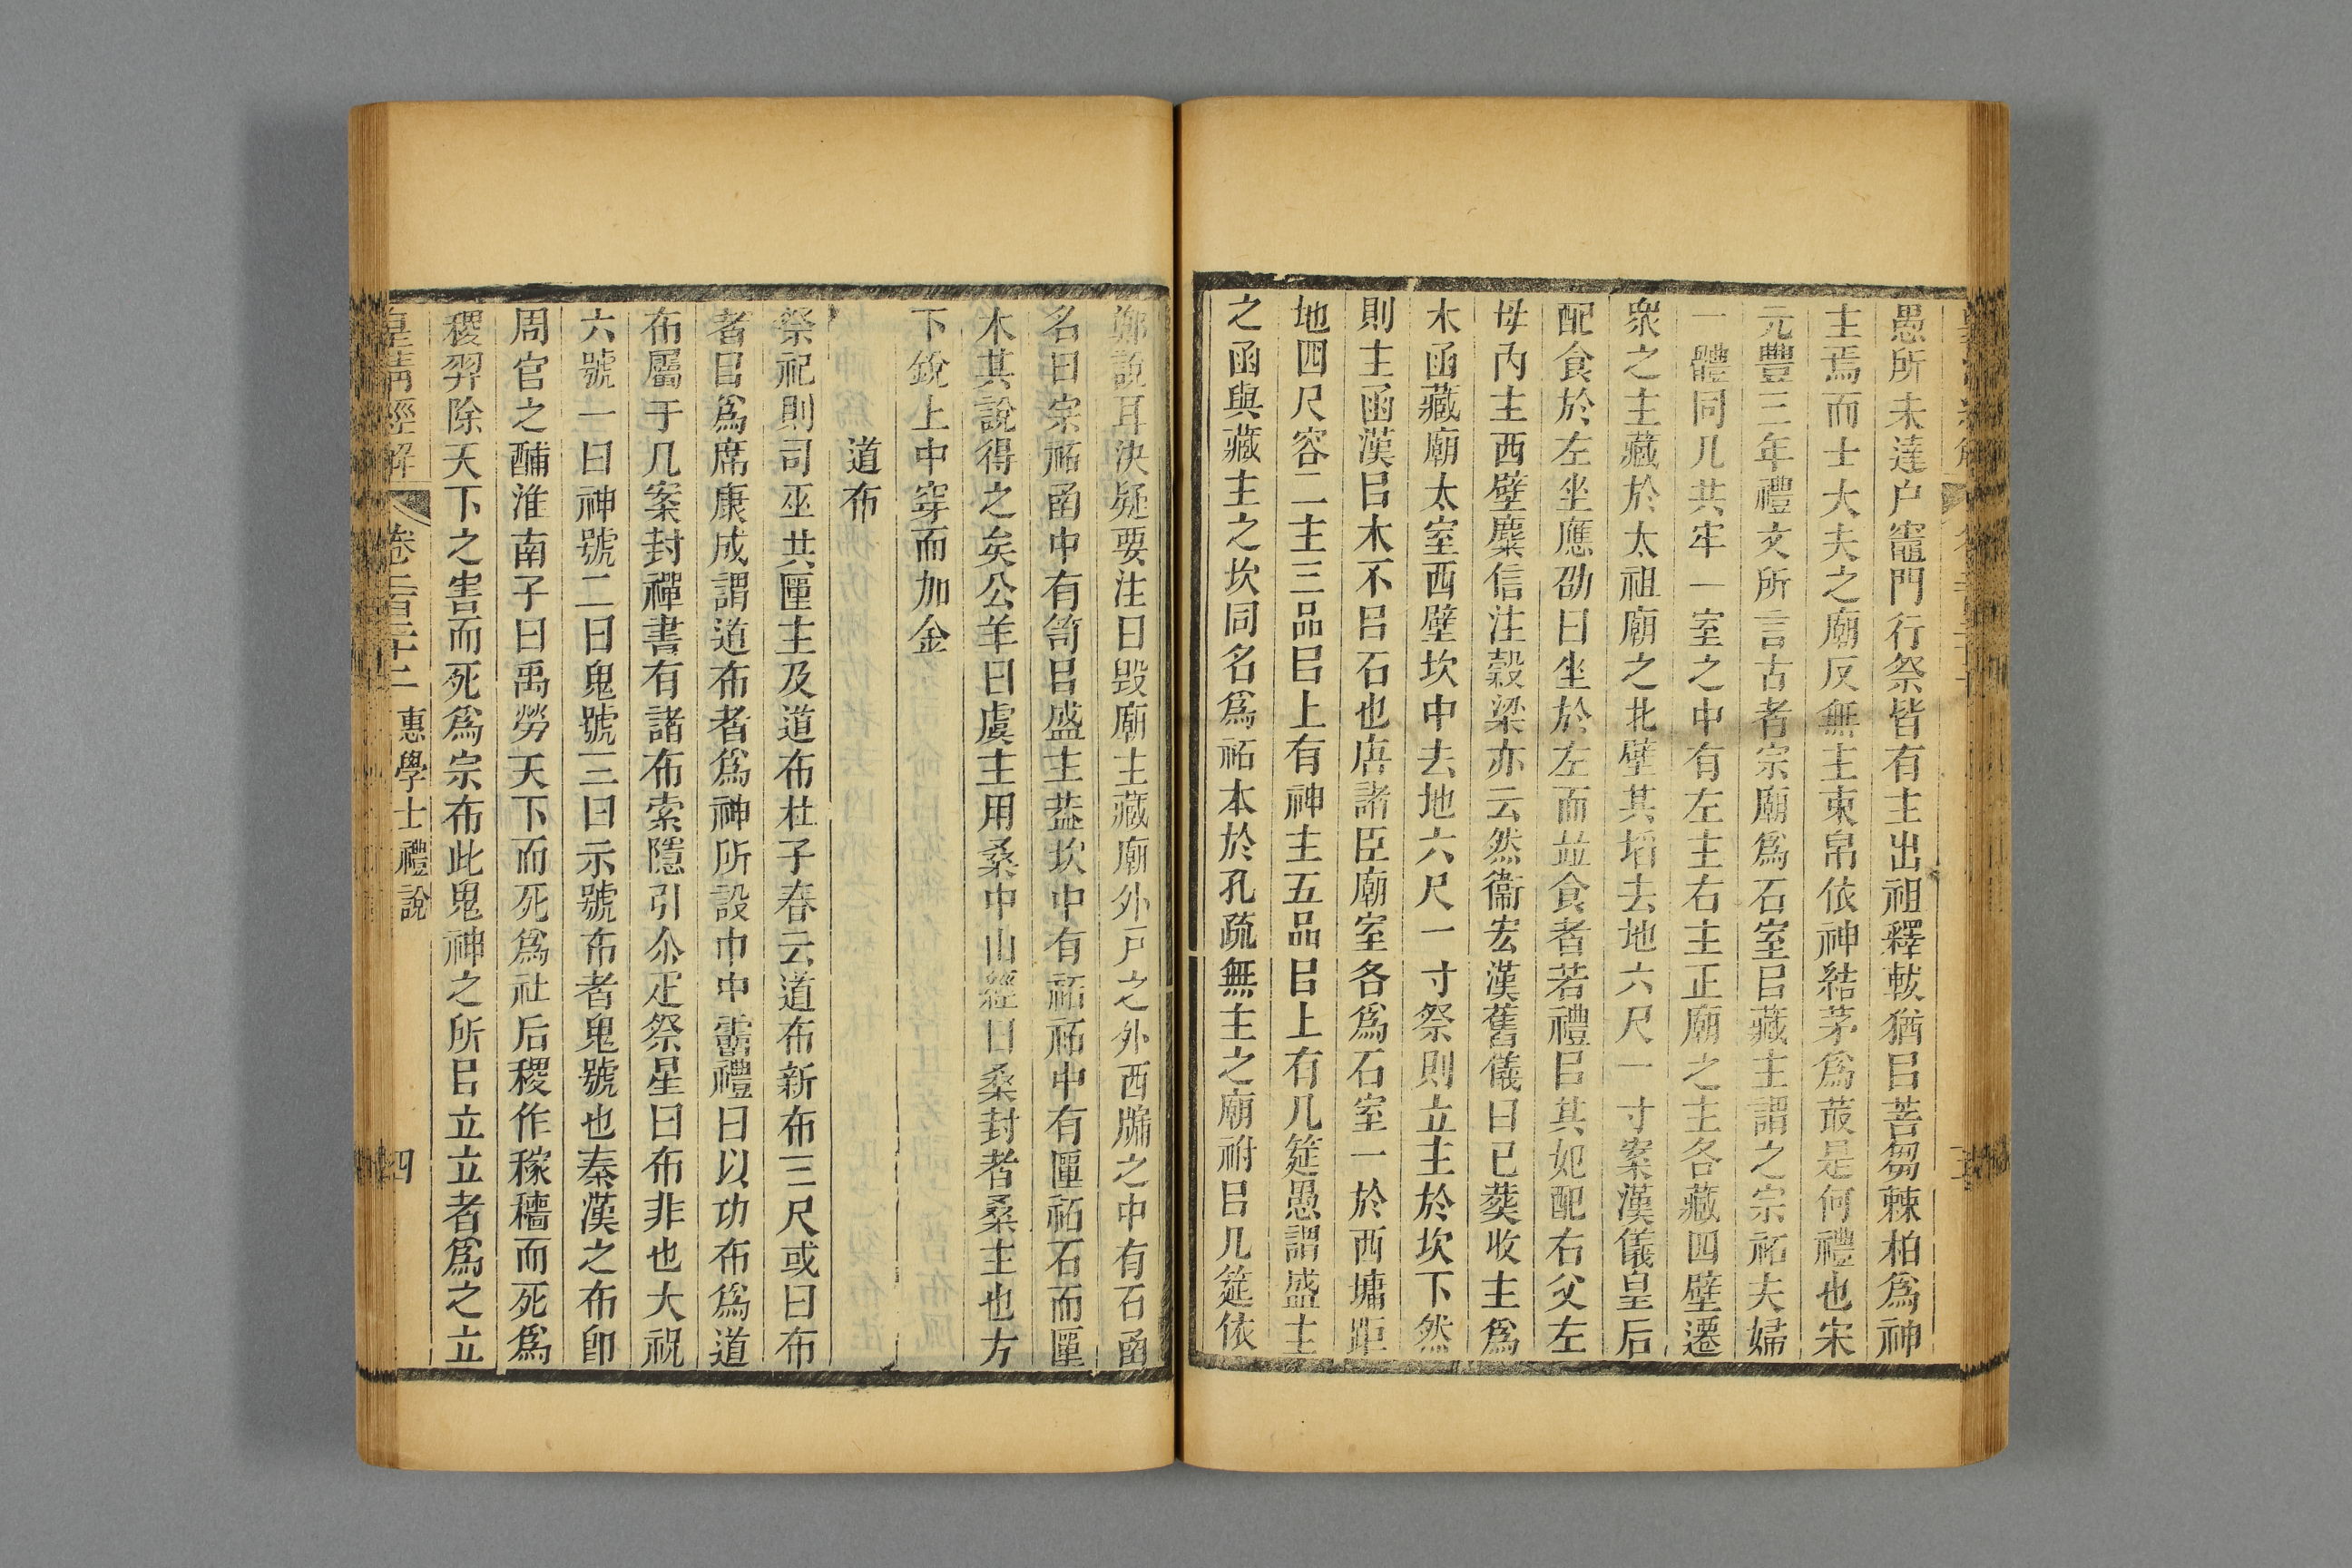 愚所未達户竈門行祭皆有主出祖釋軷猶㠯菩芻棘柏爲神
主焉而士大夫之廟反無主束帛依神結茅爲菆是何禮也宋
元豐三年禮文所言古者宗廟爲石室㠯藏主謂之宗祏夫婦
一體同几共牢一室之中有左主右主正廟之主各藏四壁遷
衆之主藏於太祖廟之北壁其埳去地六尺一寸案漢儀皇后
配食於左坐應劭曰坐於左而並食者若禮㠯其妃配右父左
母丙主西壁麋信注穀梁亦云然衞宏漢舊儀曰已葬收主爲
木函藏廟太室西壁坎中去地六尺一寸祭則立主於坎下然
則主函漢㠯木不㠯石也唐諸臣廟室各爲石室一於西墉距
地四尺容二主三品㠯上有神主五品㠯上有几筵愚謂盛主
之函與藏主之坎同名爲祏本於孔疏無主之廟祔㠯几筵依
鄭說耳決疑要注曰毀廟主藏廟外戸之外西牖之中有石函
名曰宗祏函中有笥㠯盛主葢坎中有祏祏中有匰祏石而匰
木其說得之矣公羊曰虞主用桑中山經曰桑封者桑主也方
下銳上中穿而加金
道布
祭祀則司巫共匰主及道布杜子春云道布新布三尺或曰布
者㠯爲席康成謂道布者爲神所設巾中霤禮曰以功布爲道
布屬于几案封禪書有諸布索隱引尒疋祭星曰布非也大祝
六號一曰神號二曰鬼號三曰示號布者鬼號也秦漢之布卽
周官之酺淮南子曰禹勞天下而死爲社后稷作稼穡而死爲
稷羿除天下之害而死爲宗布此鬼神之所㠯立立者爲之立
皇清經解 卷二百二十二 惠學士禮說 四